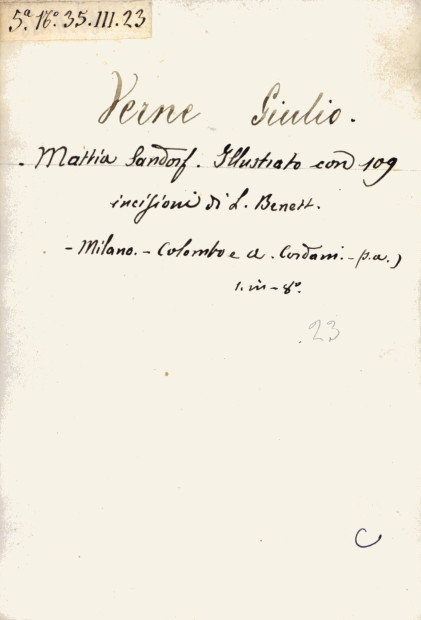 5ª.16º.35.III.23
Verne Giulio.
- Mattia Sandorf. Illustrato con 109
incisioni di L. Benett.
- Milano. - Colombo e A. Cordani. - s.a.)
1. in - 8º.
23
C